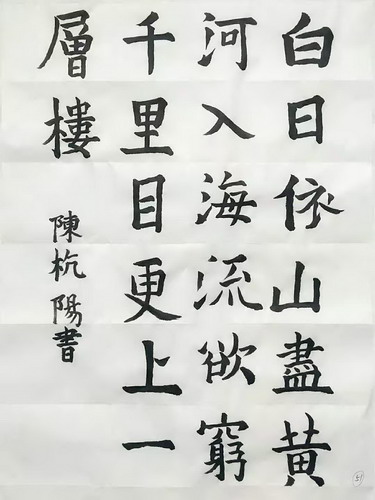 白日依山盡黄
河入海流欲窮
千里目更上一
層樓
陳杭陽書
51